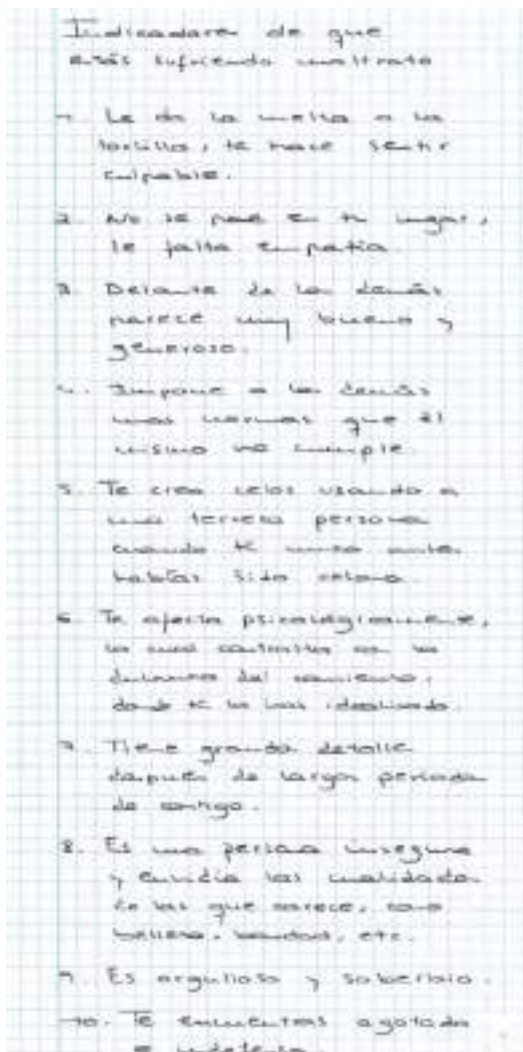 Indicadores de que
estás sufriendo maltrato
1. Le da la vuelta a la
tortilla, te hace sentir
culpable.
2. No se pone en tu lugar,
le falta empatía.
3. Delante de los demás
parece muy bueno y
generoso.
4. Impone a los demás
unas normas que él
mismo no cumple.
5. Te crea celos usando a
una tercera persona
cuando tú nunca antes
habías sido celosa.
6. Te afecta psicológicamente,
lo cual contrasta con la
del comienzo,
donde tú lo has idealizado.
7. Tiene grandes detalles
después de largos periodos
de castigo.
8. Es una persona insegura
y envidia las cualidades
de las que carece, como
belleza, bondad, etc.
9. Es orgulloso y soberbio.
10. Te encuentras agotada
e indefensa.